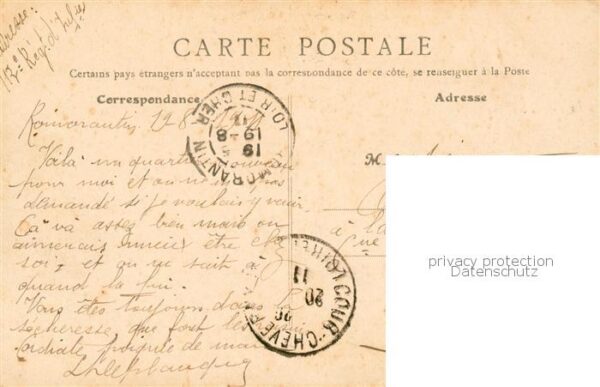 Adresse:
13e Régt d'Infie
CARTE POSTALE
Certains pays étrangers n'acceptant pas la correspondance de ce côté, se renseigner à la Poste
Correspondance
Adresse
ROMORANTIN LOIR ET CHER
19 - 8
Romorantin 19-8
Voilà un quartier nouveau
pour moi et on ne
demandé si je voulais y venir.
Çà và assez bien mais on
aimerais mieux être chez
soi, et on ne sait à
quand la fin.
Vous êtes toujours dans la
sécheresse, que font les
Cordiale poignée de main
M.
à la
COUR-CHEVERNY
LOIR ET
11
20
privacy protection
Datenschutz